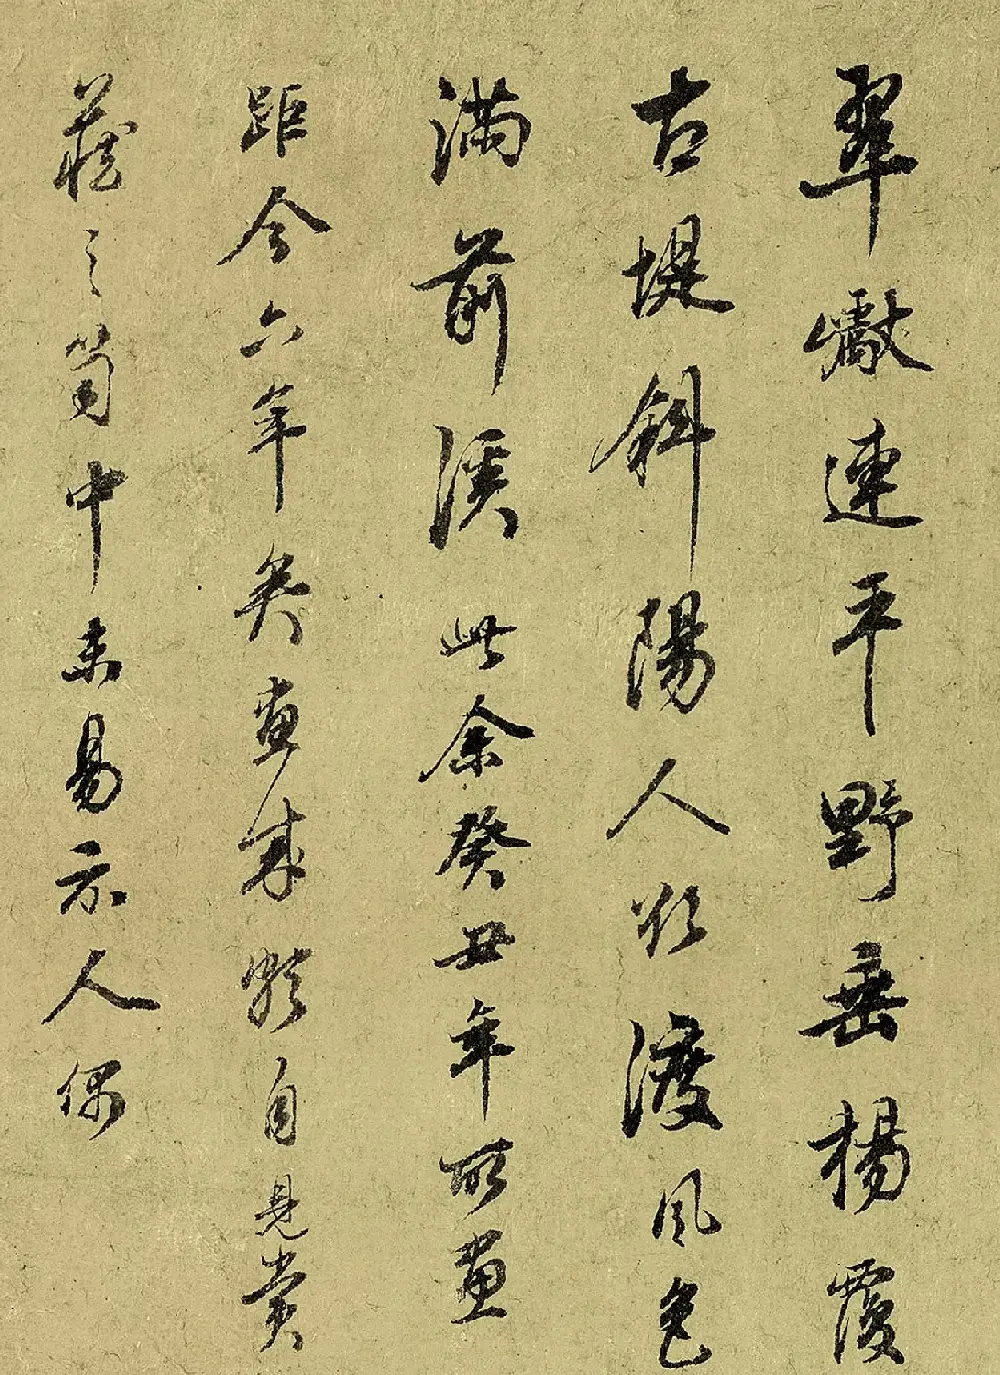 翠巘連平野垂楊覆
古堤斜陽人欲渡風色
満前溪此余癸丑年所畫
距今六年矣畫成頗自見賞
藏之笥中未易示人偶